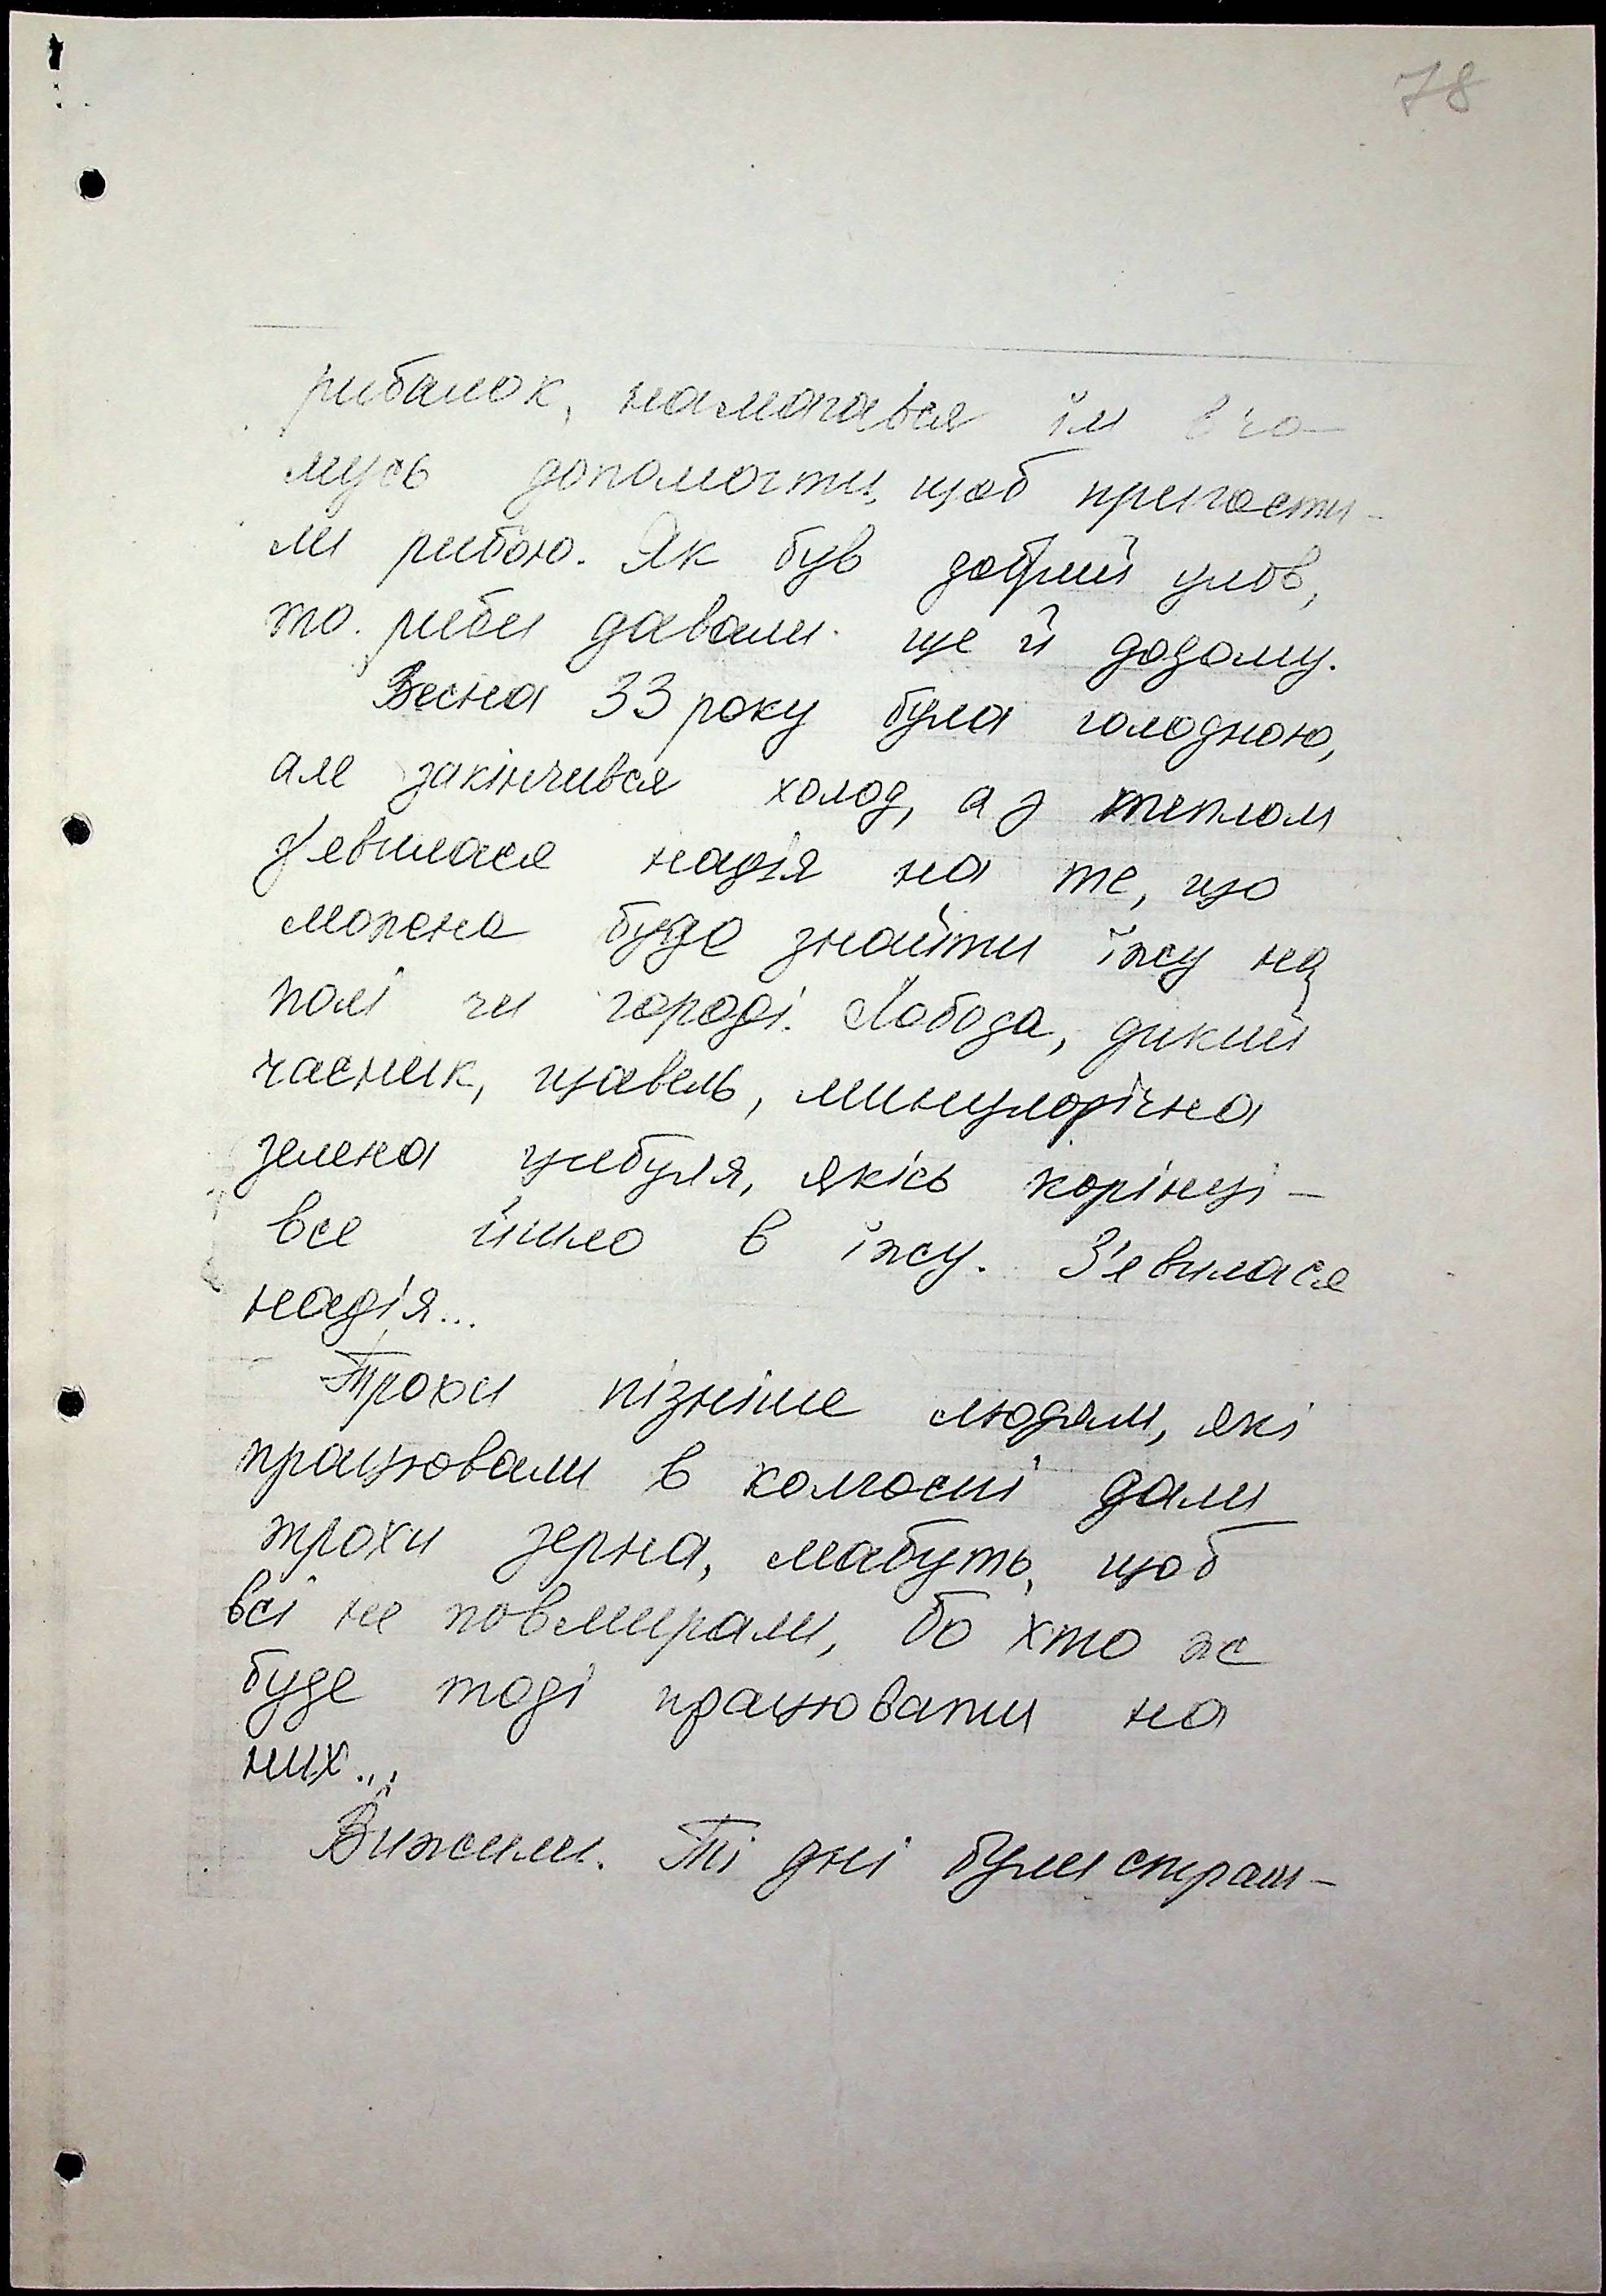 78
рибалок, намагався їм в чо-
мусь допомогти, щоб пригости-
ли рибою. Як був добрий улов,
то риби давали ще й додому.
Весна 33 року була голодною,
але закінчився холод, а з теплом
з'явилася надія на те, що
можна буде знайти їжу на
полі чи городі. Лобода, дикий
часник, щавель, минулорічна
зелена цибуля, якісь корінці -
все йшло в їжу. З'явилася
надія...
Трохи пізніше людям, які
працювали в колгоспі дали
трохи зерна, мабуть, щоб
всі не повмирали, бо хто ж
буде тоді працювати на
них...
Вижили. Ті дні були страш-